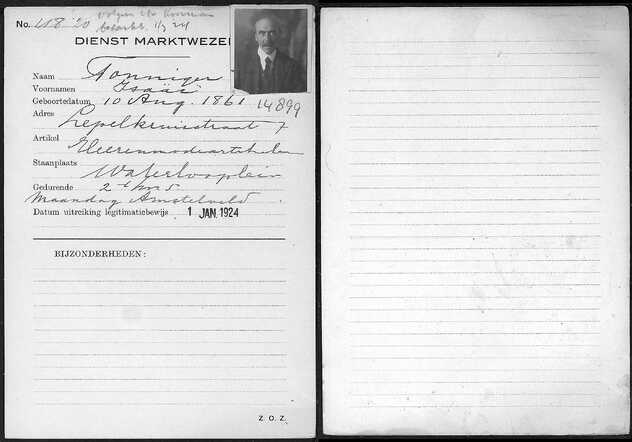 No. 118-20
1/3 24
DIENST MARKTWEZE
Naam Tonninger
Voornamen Isaäc
Geboortedatum 10 Aug. 1861 14899
Adres Lepelkruisstraat 7
Artikel Heerenmodeartikelen
Staanplaats Waterlooplein
Gedurende 2e km 5
Maandag Amstelveld.
Datum uitreiking legitimatiebewijs 1 JAN. 1924
BIJZONDERHEDEN:
Z. O. Z.